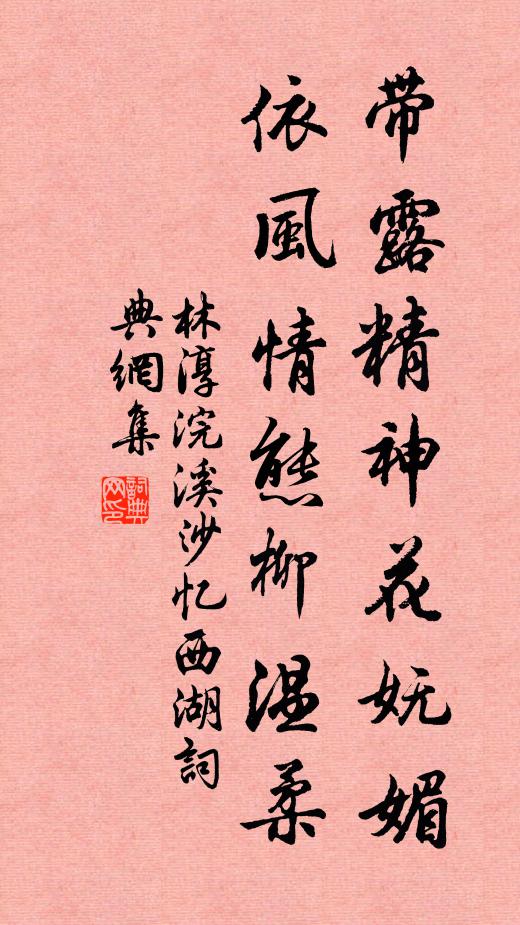 带露精神花妩媚
依風情態柳温柔
林淳浣溪沙忆西湖詞
典網集
詞典
网印